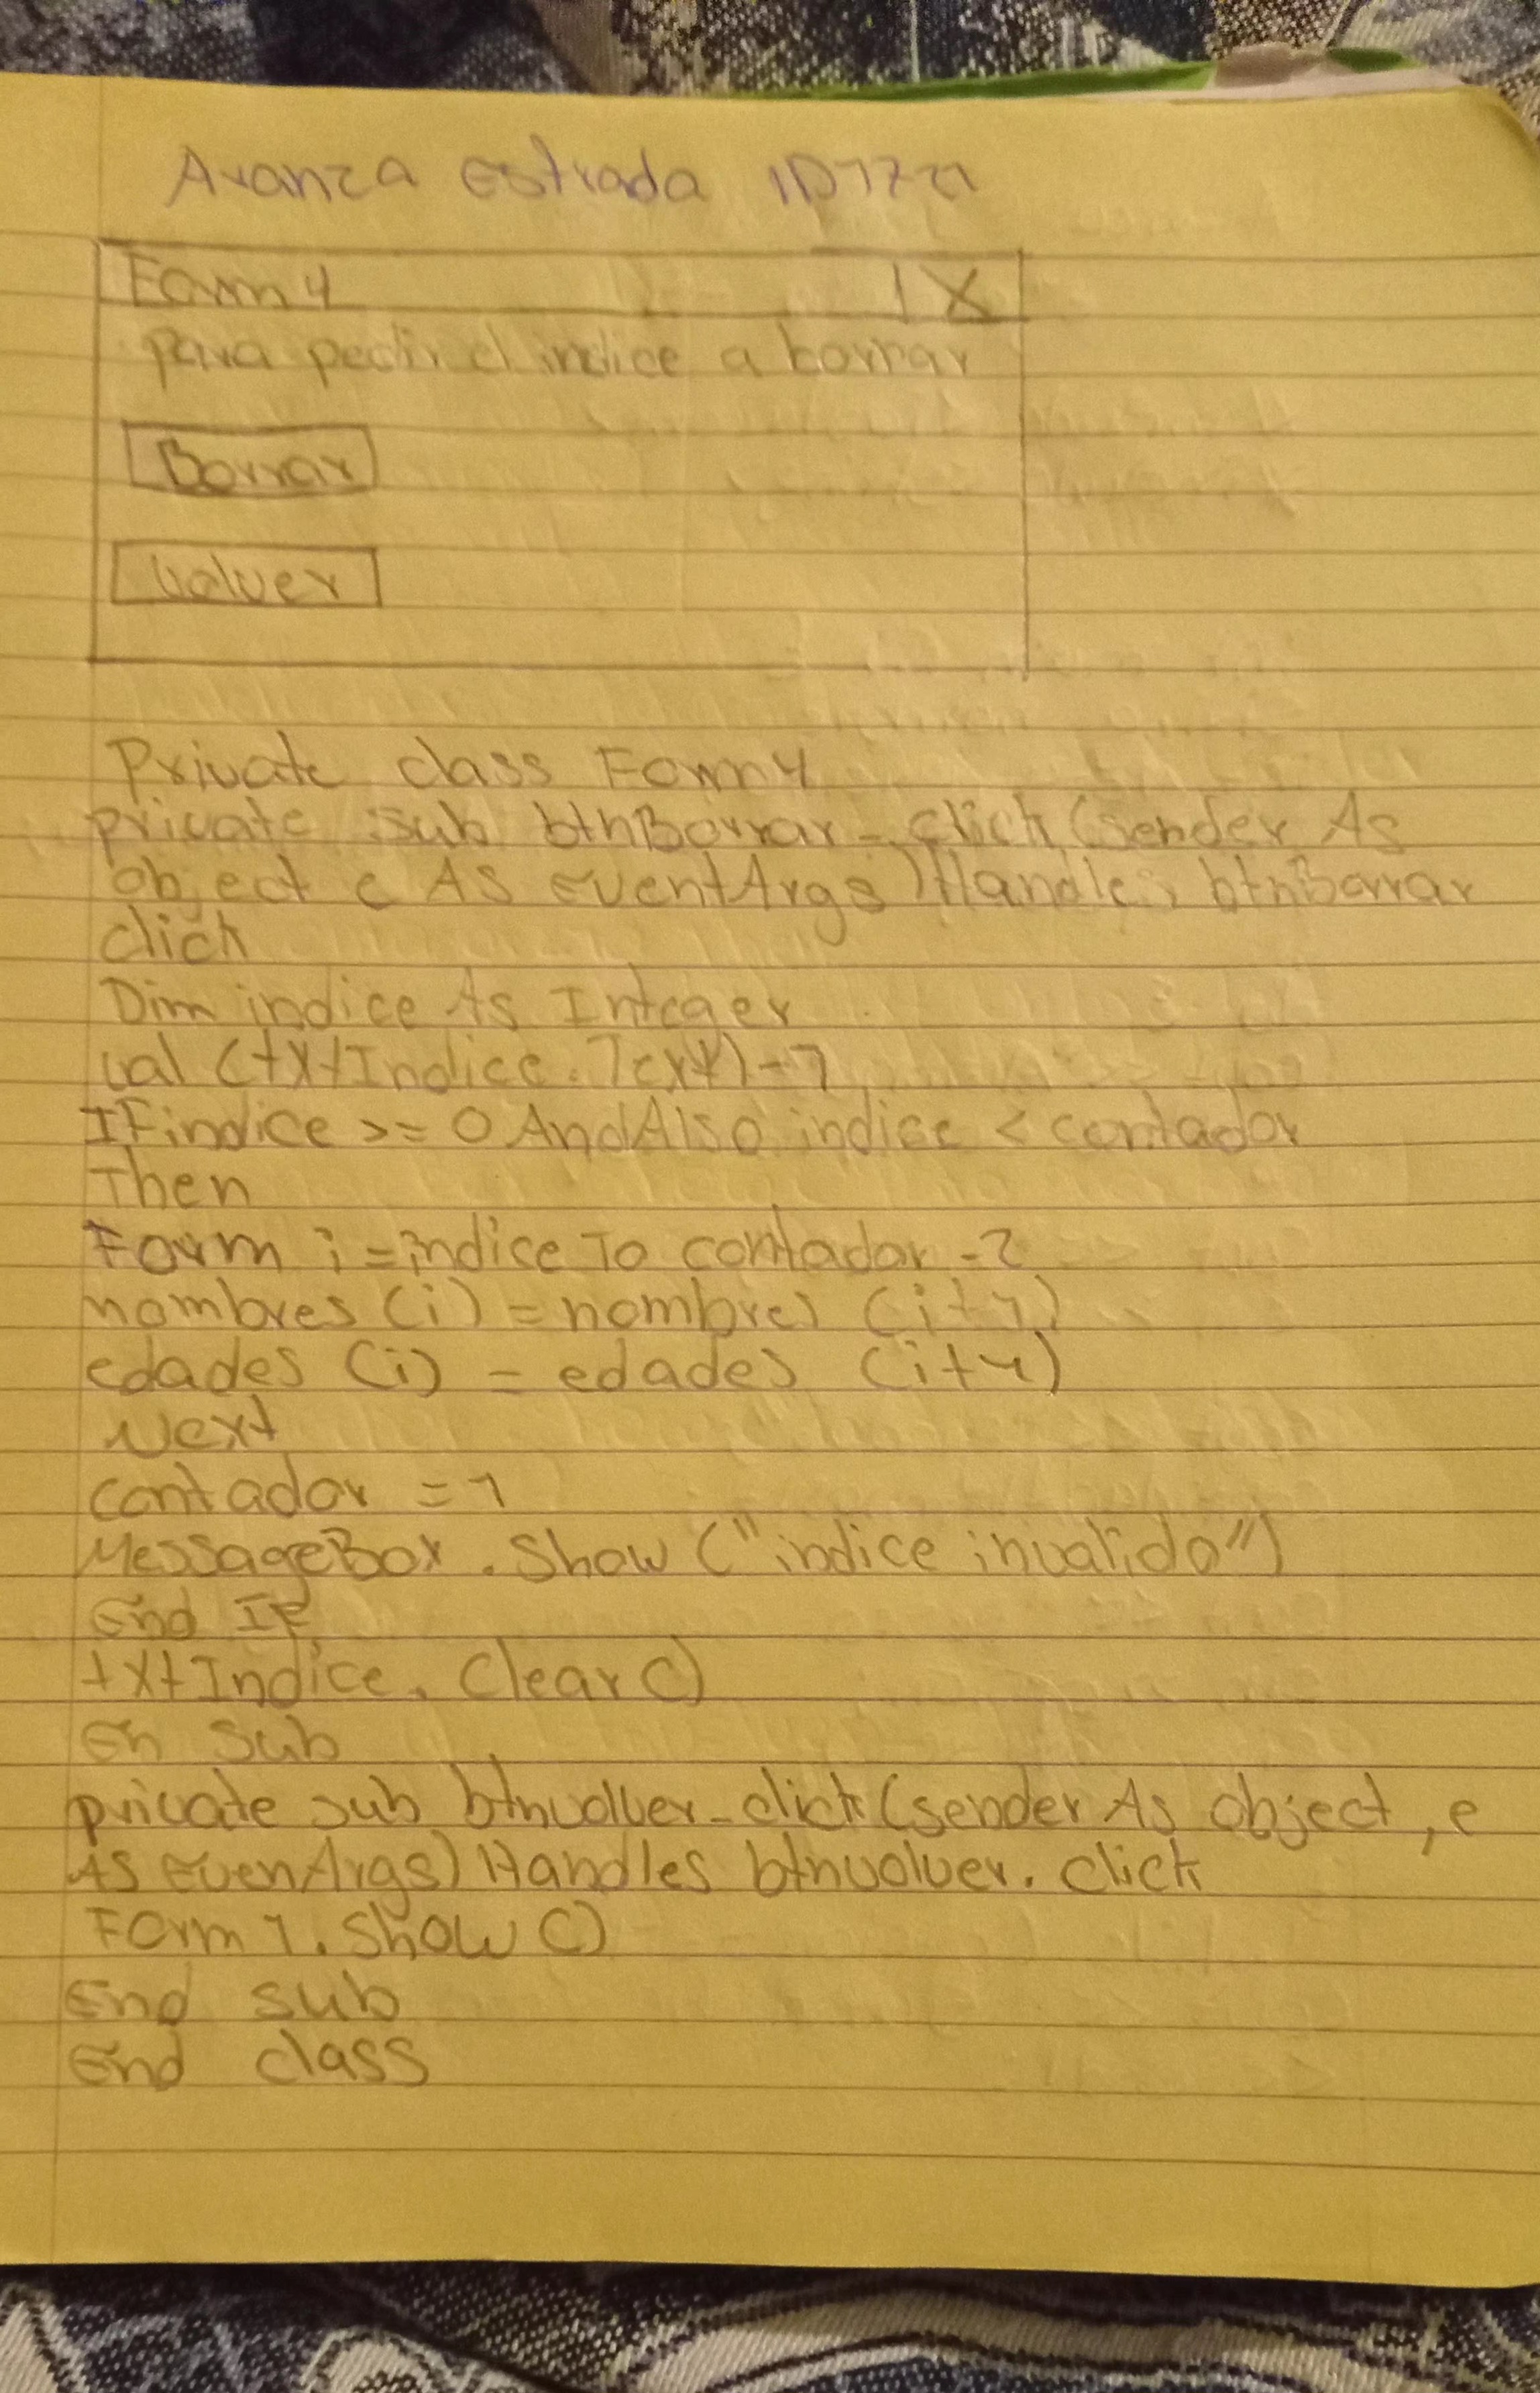 Avanza estrada
Form 4 | X
para pedir el indice a borrar
Borrar
Volver
Private class Form 4
private sub btnBorrar_click (sender As
object e As eventArgs) Handles btnBorrar
click
Dim indice As Integer
val (txtIndice.Text)-1
IF indice >= 0 AndAlso indice < contador
Then
Form i = indice To contador -2
nombres (i) = nombres (i+1)
edades (i) = edades (i+1)
Next
contador = 1
MessageBox.Show ("indice invalido")
End IF
txtIndice.Clear()
En Sub
private sub btnvolver_click (sender As object, e
As evenArgs) Handles btnvolver.click
Form 1.Show ()
End sub
End class